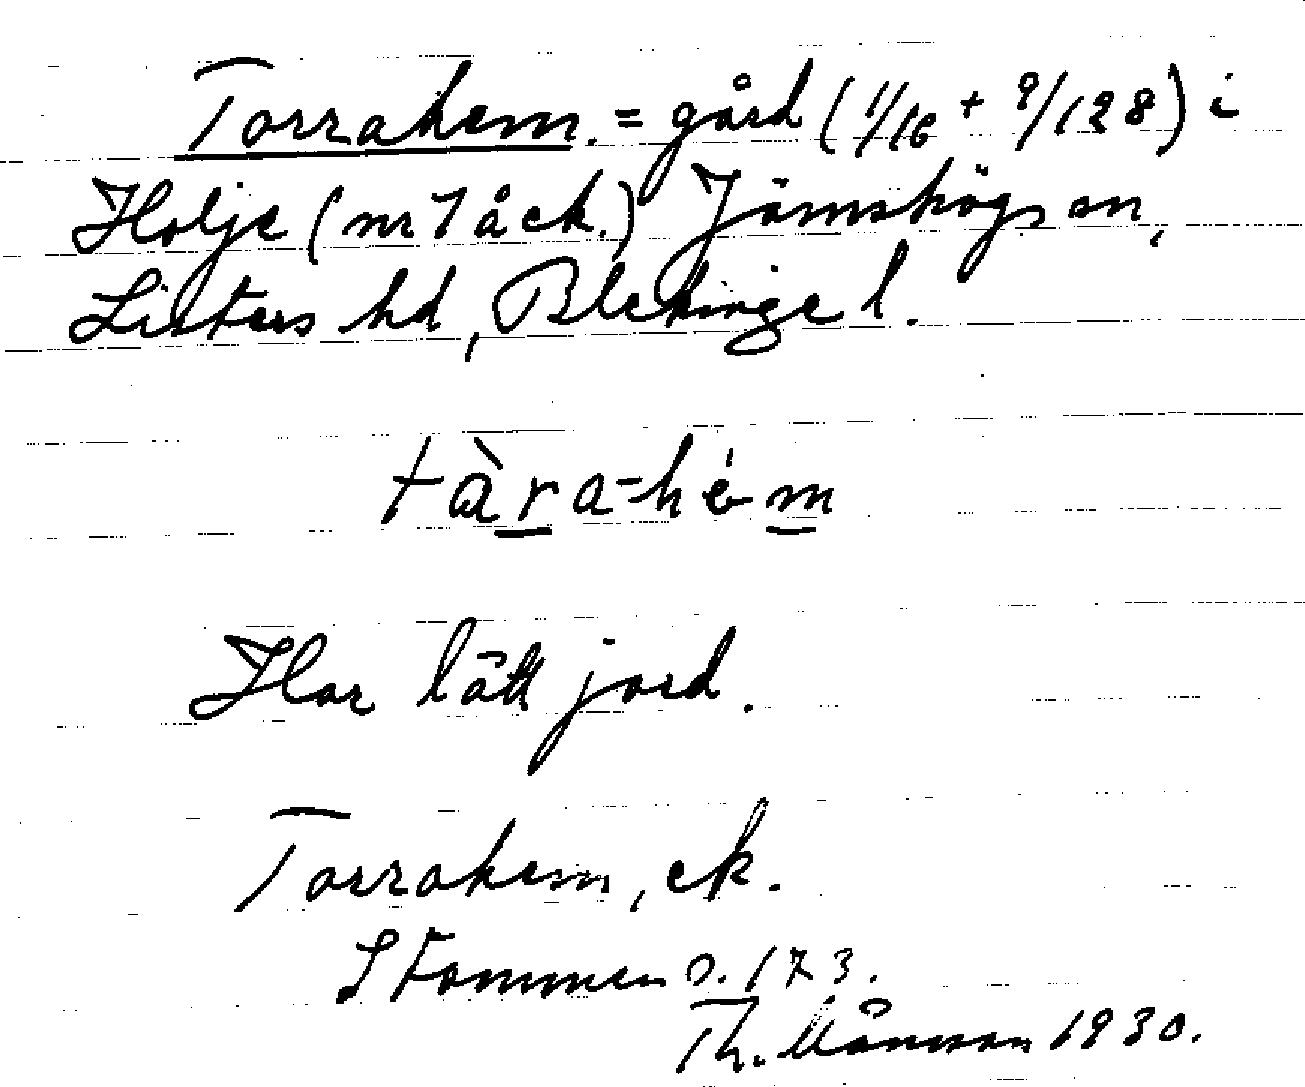 Torrahem. = gård (1/16 + 9/128) i
Holje (nr 7 åck.) Jämshögs sn,
Listers hd, Blekinge l.
tàra-hém
Har lätt jord.
Torrahem, ek.
Stommen s. 173.
Th. Månsson 1930.